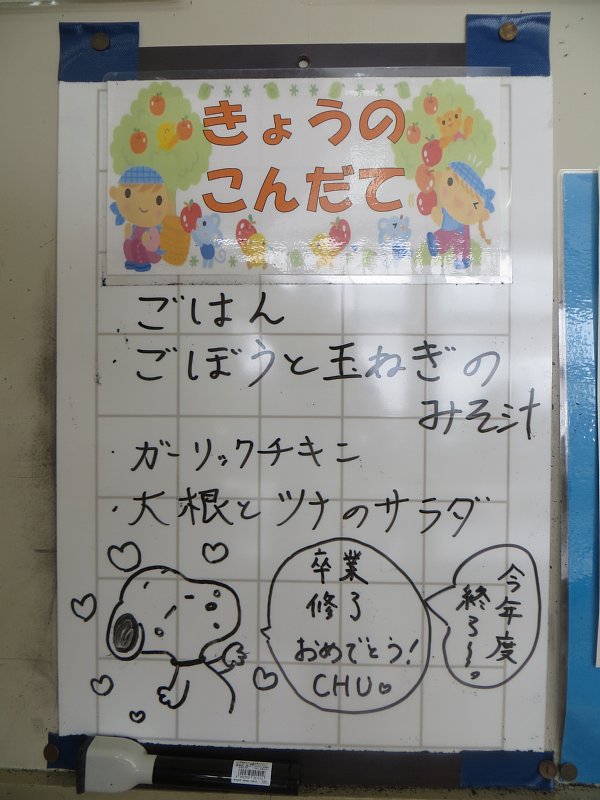 きょうの
こんだて
ごはん
・ごぼうと玉ねぎの
みそ汁
・ガーリックチキン
・大根とツナのサラダ
卒業
修了
おめでとう!
CHU♡
今年度
終了〜。